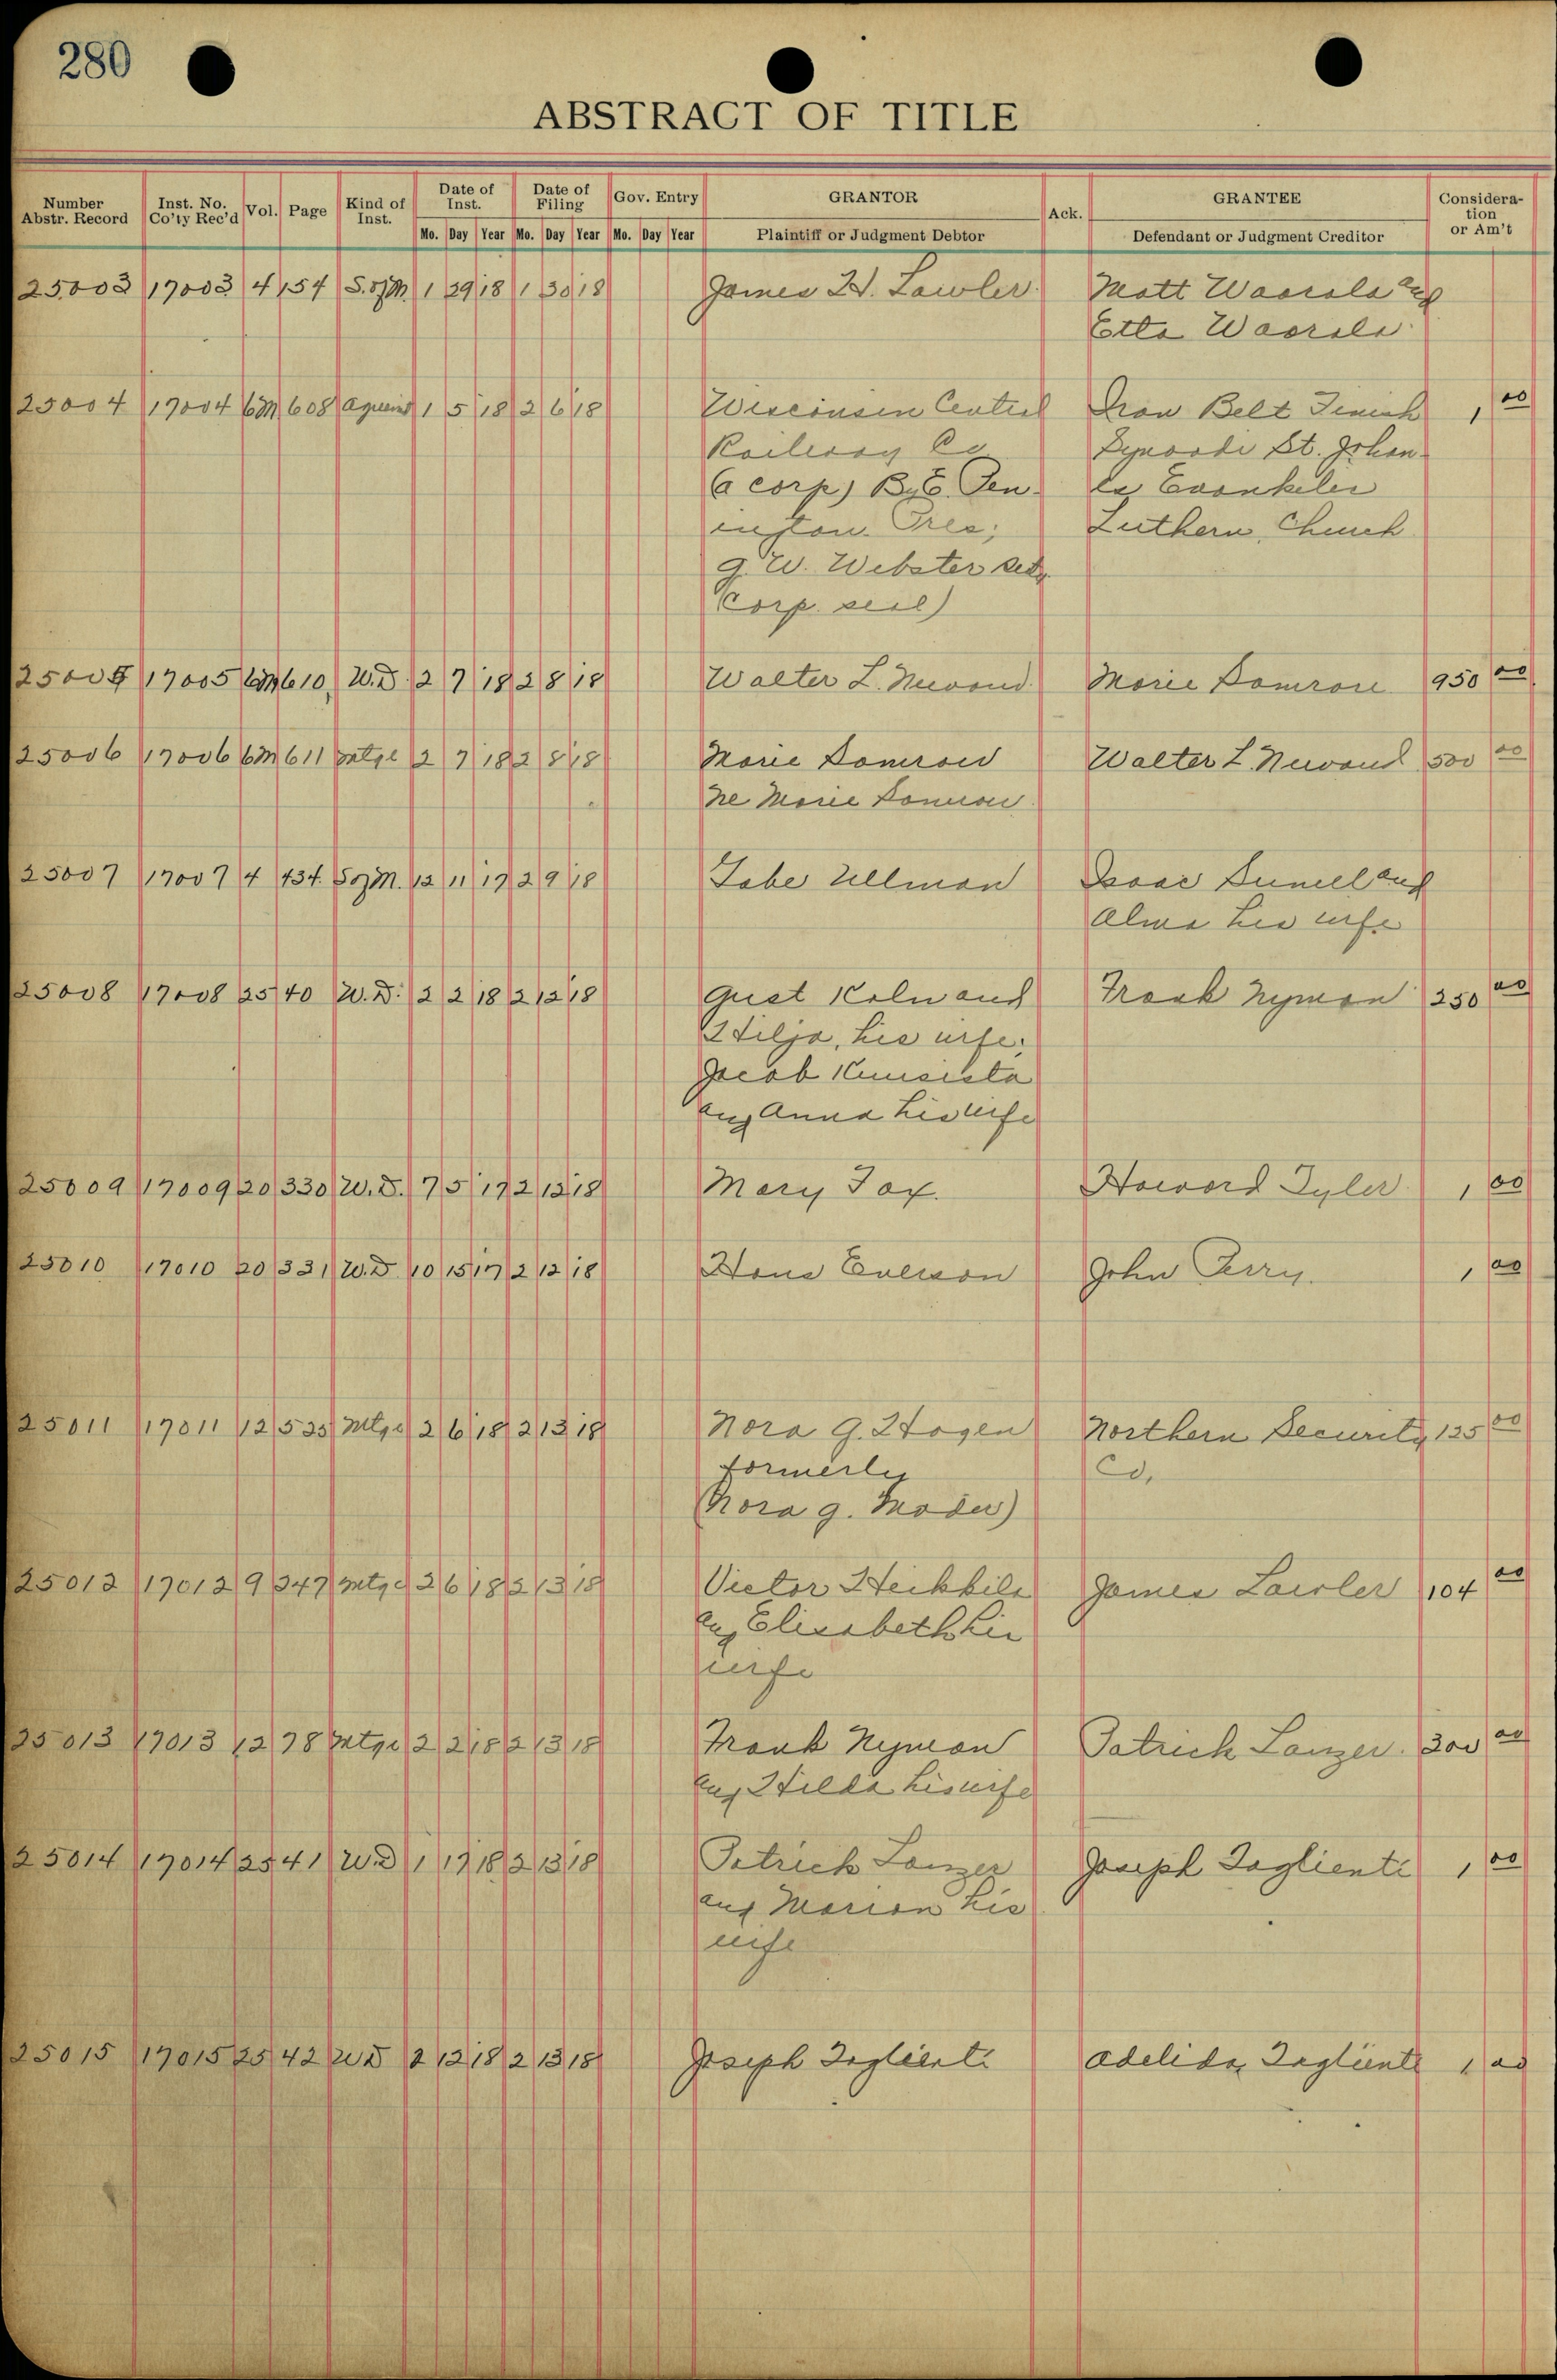 280
ABSTRACT OF TITLE
Number Abstr. Record Inst. No. Co'ty Rec'd Vol. Page Kind of Inst. Date of Inst. Date of Filing Gov. Entry GRANTOR Ack. GRANTEE Consideration or Am't
Mo. Day Year Mo. Day Year Mo. Day Year Plaintiff or Judgment Debtor Defendant or Judgment Creditor
25003 17003 4 154 S. of M. 1 29 18 1 30 18 James H. Lawler Matt Waarala and
Etta Waarala
25004 17004 6M 608 1 5 18 2 6 18 Wisconsin Central Iron Belt Finish 1 00
Railway Co Synoodi St. Johan-
(a corp) By E. Pen- es Evankelis
ington Pres; Luthern Church
G. W. Webster Secy
(Corp. seal)
25005 17005 6M 610 W.D. 2 7 18 2 8 18 Walter L. Marie 950 00
25006 17006 6M 611 Mtge 2 7 18 2 8 18 Marie Walter L. 500 00
Ne Marie
25007 17007 4 434 S of M. 12 11 17 2 9 18 Gabe Ullman Isaac and
Alma his wife
25008 17008 25 40 W.D. 2 2 18 2 12 18 Gust and Frank Nyman 250 00
Hilja, his wife;
Jacob
and Anna his wife
25009 17009 20 330 W.D. 7 5 17 2 12 18 Mary Fox. Howard Tyler 1 00
25010 17010 20 331 W.D. 10 15 17 2 12 18 Hans Everson John Perry. 1 00
25011 17011 12 525 Mtge 2 6 18 2 13 18 Nora G. Hagen Northern Security 125 00
formerly Co.
(Nora G. Moder)
25012 17012 9 247 Mtge 2 6 18 2 13 18 Victor Heikkila James Lawler 104 00
and Elisabeth his
wife
25013 17013 12 78 Mtge 2 2 18 2 13 18 Frank Nyman Patrick Lanzer. 300 00
and Hilda his wife
25014 17014 25 41 W.D 1 17 18 2 13 18 Patrick Lanzer Joseph Taglienti 1 00
and Marion his
wife
25015 17015 25 42 WD 2 12 18 2 13 18 Joseph Taglienti Adelida Taglienti 1 00